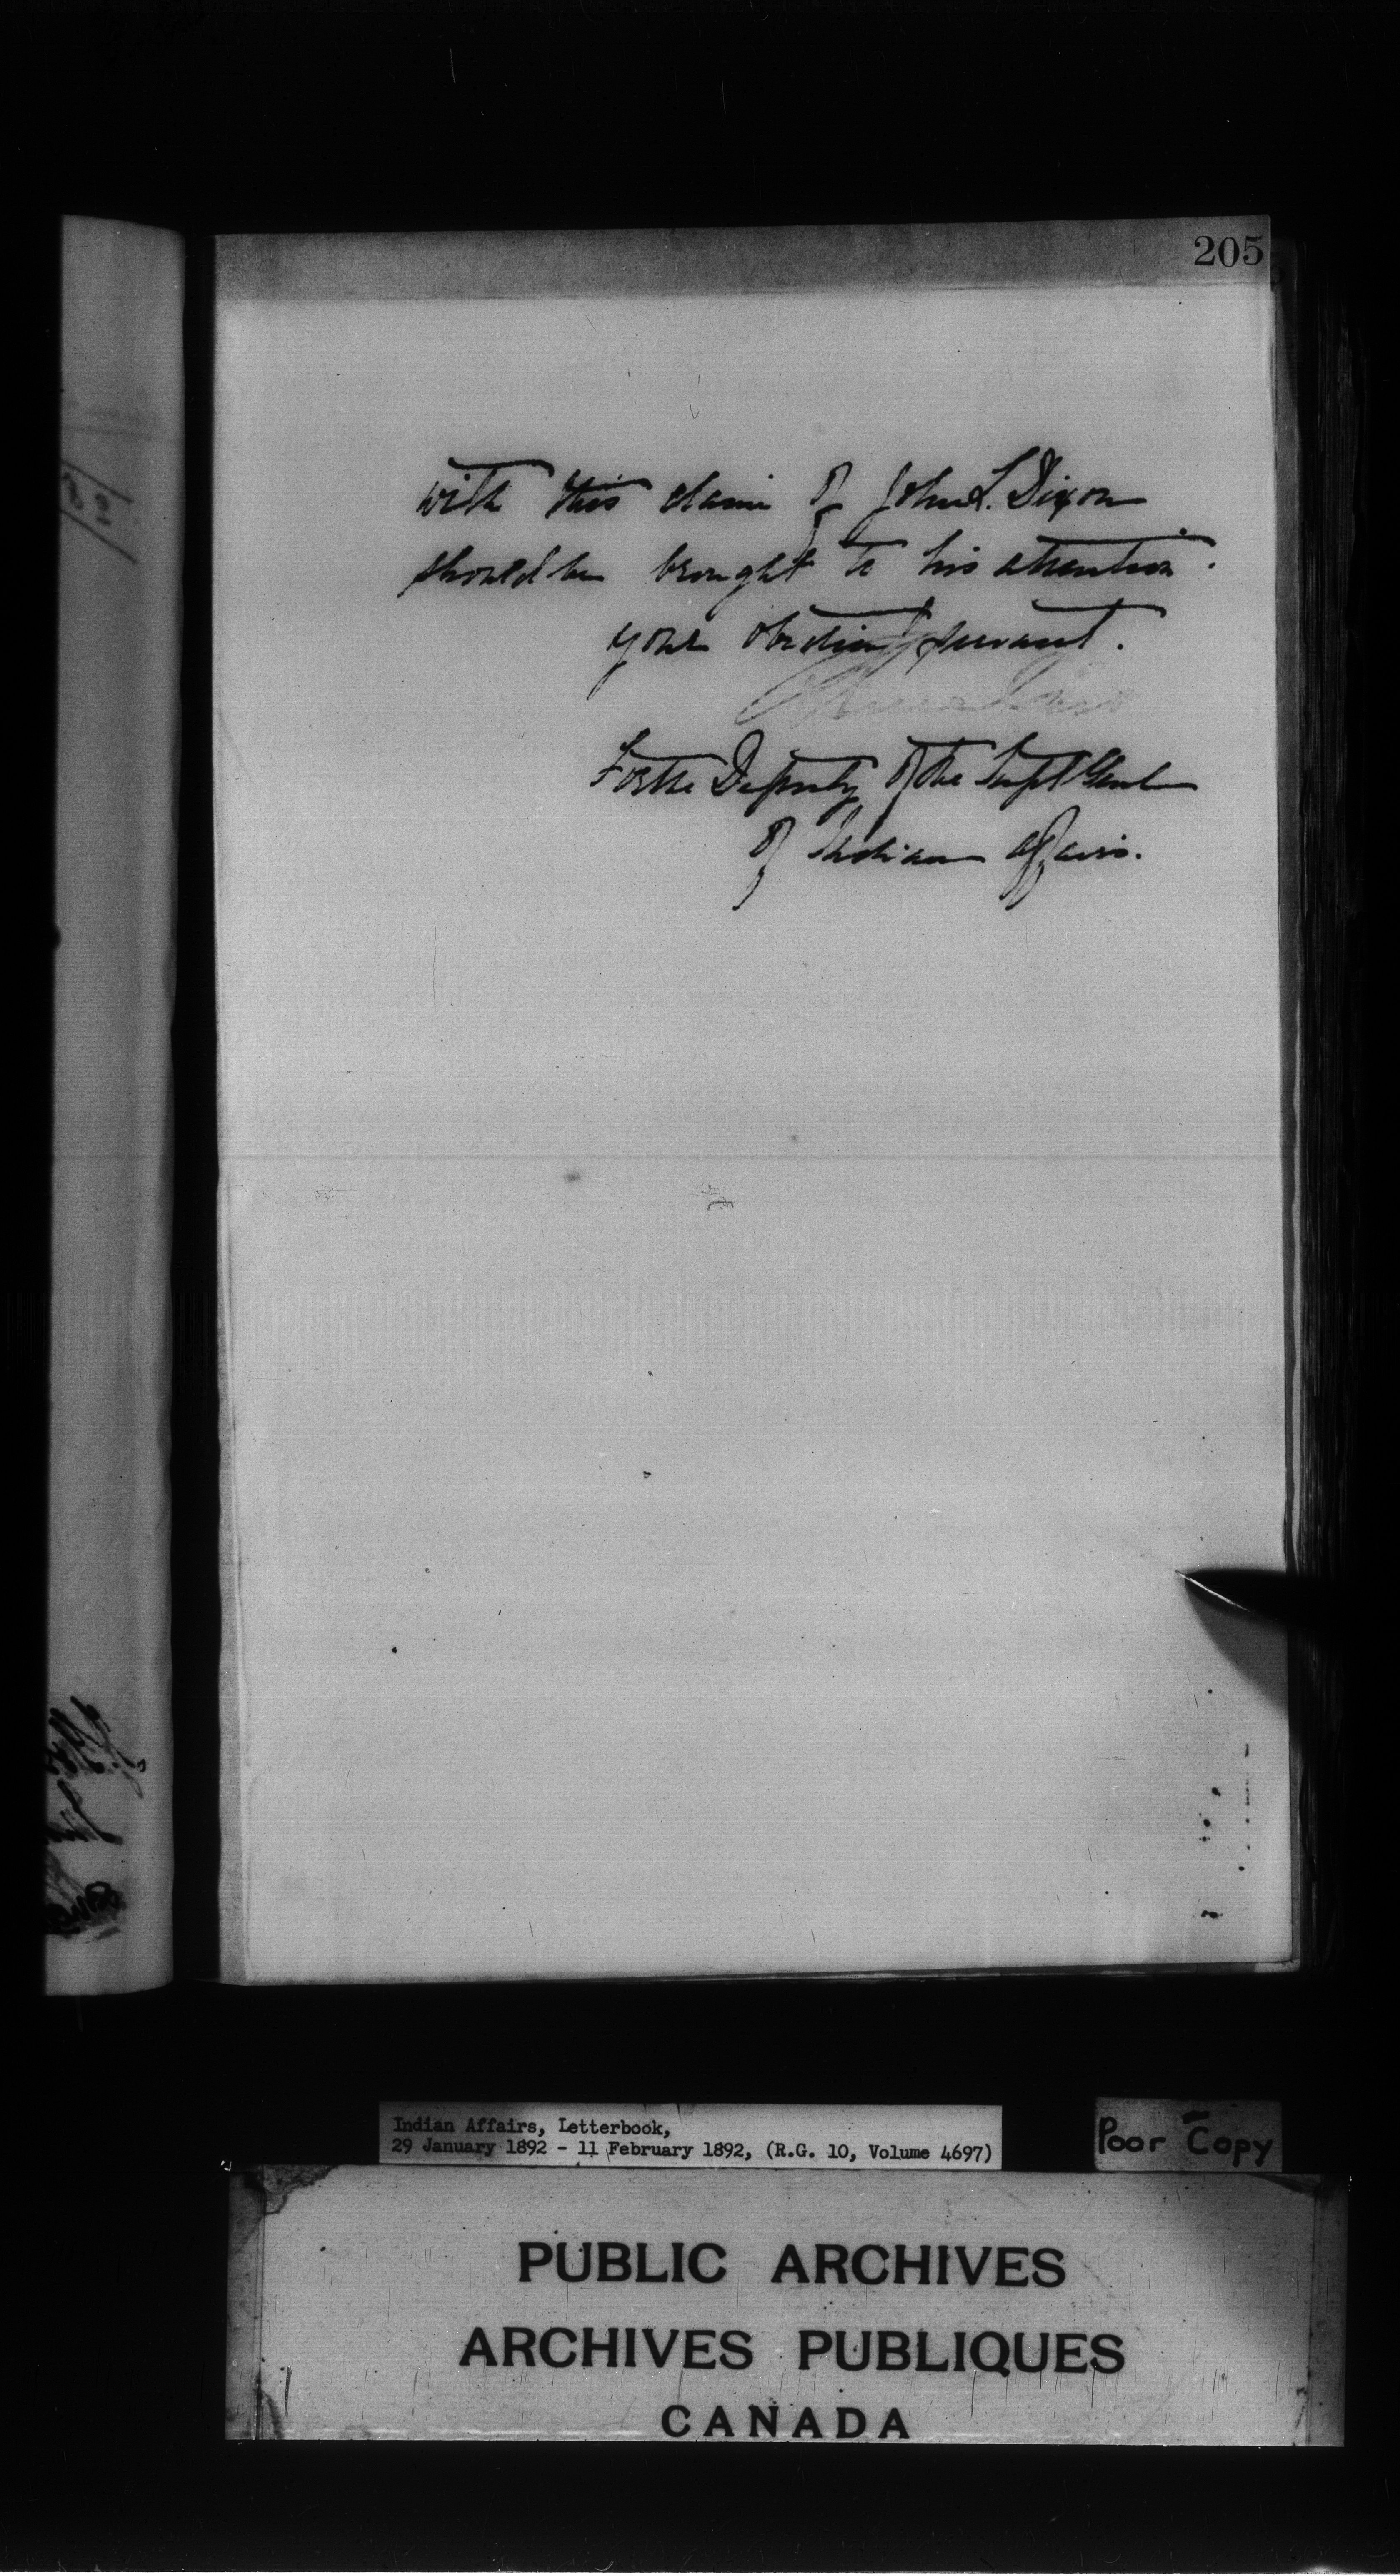 205
with this claim of John L. Dixon
should be brought to his attention.
your obedient servant.
For the Deputy of the Supt Genl
of Indian Affairs.
Indian Affairs, Letterbook,
29 January 1892 - 11 February 1892, (R.G. 10, Volume 4697)
Poor Copy
PUBLIC ARCHIVES
ARCHIVES PUBLIQUES
CANADA